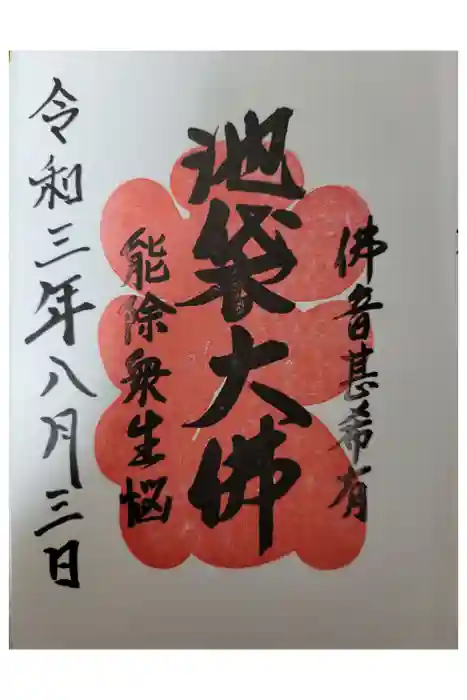 佛音甚希有
池袋大佛
能除衆生惱
令和三年八月三日